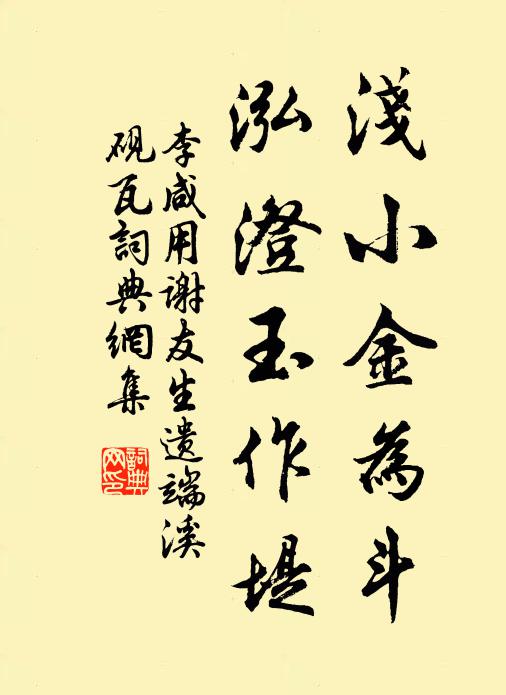 淺小金為斗
泓澄玉作堤
李咸用謝友生遺端溪
硯瓦詞典網集
詞典
网印